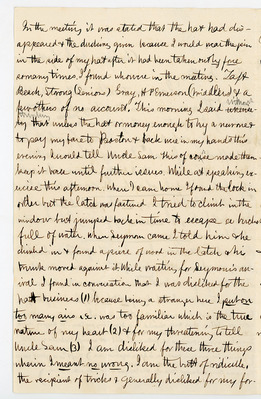 In the meeting it was stated that the hat had dis-
appeared & the duckings given because I would wear the pin
in the side of my hat after it had been taken out by force
so many times. I found who were in the meeting. Taft
Beach, Strong (Seniors) Gray, H. Pemerson (Middlers) & a
few others of no account. This morning I said
that unless the hat or money enough to by a new one &
to pay my fare to Boston & back were in my hands this
evening I would tell Uncle Sam. this of course made them
keep it back until further issues. While at speaking ex-
ercise this afternoon. When I came home I found the lock in
order but the latch was fastened I tried to climb in the
window but jumped back in time to escape a bucket
full of water. when Seymour came I told him & he
climbed in & found a piece of wood in the latch & his
trunk moved against it. While waiting for Seymour's ar-
rival I found in conversation that I was disliked for the
hat business (1) because being a stranger here I put on
too many airs i.e. was too familiar which is the true
nature of my heart (2) & for my threatening to tell
Uncle Sam (3) I am disliked for these three things
wherein I meant no wrong. I am the butt of ridicule,
the recipient of tricks & generally disliked for my for-